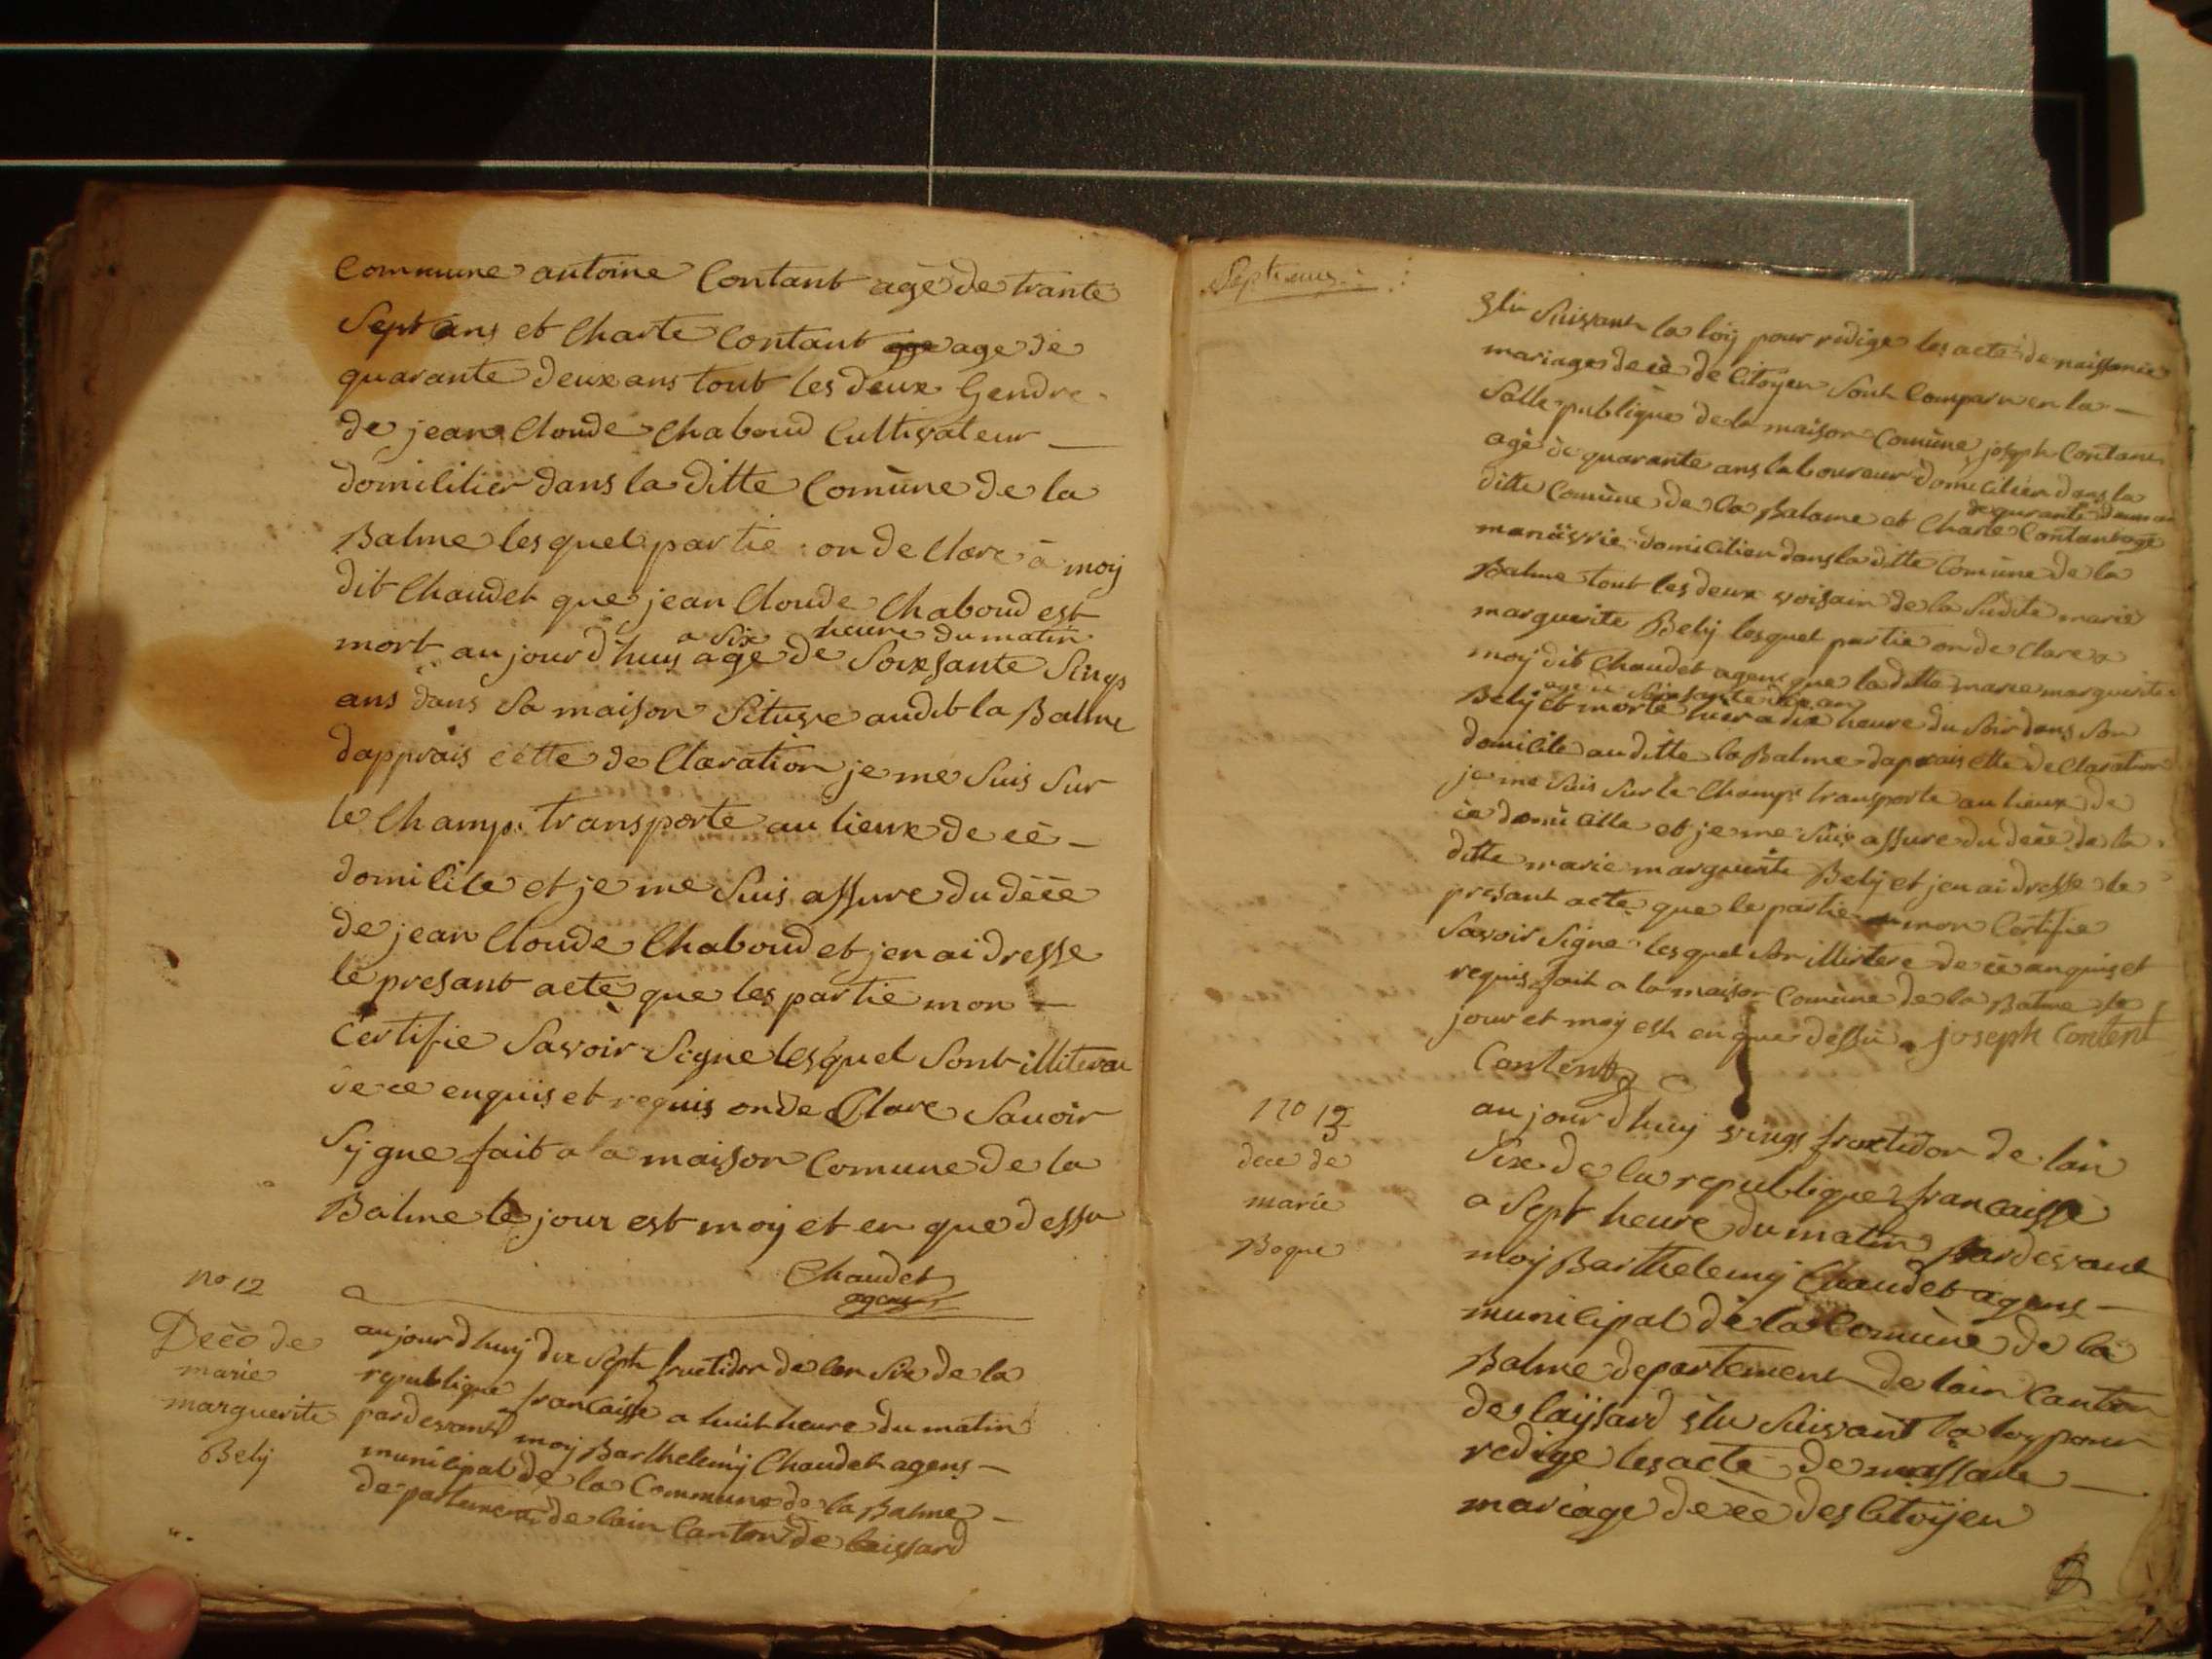 Commune antoine Contant agé de trante
Sept ans et Charle Contant age de
quarante deux ans tout les deux Gendre
de jean Cloude Chaboud Cultivateur
domicilier dans la ditte Comune de la
Balme les quel partie on de Clare à moy
dit Chaudet que jean Cloude Chaboud est
a Six heure du matin
mort au jourdhuy age de Soixsante Sings
ans dans Sa maison Siture audit la Balme
dapprais cette de Claration je me Suis Sur
le Champ transporté au lieux de cé
domicile et je me Suis assure du décé
de jean Cloude Chaboud et jen ai dresse
le presant acte que les partie mon
Certifie Savoir Signe lesquel Sont
de ce enquis et requis onde Clare Savoir
Sygne fait a la maison Comune de la
Balme le jour est moy et en que dessu
Chaudet
agens
no 12
Décé de
marie
marguerite
Bely
aujourdhuy dix Sept fructidor de lan Six de la
republique francaisse a huit heure du matin
pardevant moy Barthelemy Chaudet agens
municipal de la Commune de la Balme
departement de lain Canton de laissard
Septieme
Elu Suivant la loy pour redige les acte de naissance
mariage de cé de Citoyen Sont Comparu en la
Salle publique de la maison Comune joseph Contant
agé de quarante ans laboureur domicilier dans la
ditte Comune de la Balame et Charle Contant age
de quarante deux an
domicilier dans la ditte Comune de la
Balme tout les deux voisain de la Sudite marie
marguerite Bely lesquel partie on de Clare a
moy dit Chaudet agens que la ditte marie marguerite
age de Soixsante dix an
Bely et morte hier a dix heure du Soir dans Son
domicile au ditte la Balme daprais cette declaration
je me Suis Sur le Champ transporte au lieux de
ce domicille et je me Suis assure du décé de la
ditte marie marguerite Bely et jen ai dresse le
presant acte que le partie mon Certifie
Savoir Signe lesquel de ce anquis et
requis fait a la maison Comune de la Balme le
jour et moy est en que dessu joseph Content
Contint
no 13
dece de
marie
Boque
au jourdhuy vings fructidor de lan
Six de la republique francaisse
a Sept heure du matin pardevant
moy Barthelemy Chaudet agens
municipal de la Comune de la
Balme departement de lain Canton
de laysard elu Suivant la loy pour
redige les acte de naissance
mariage de cé des Citoyen